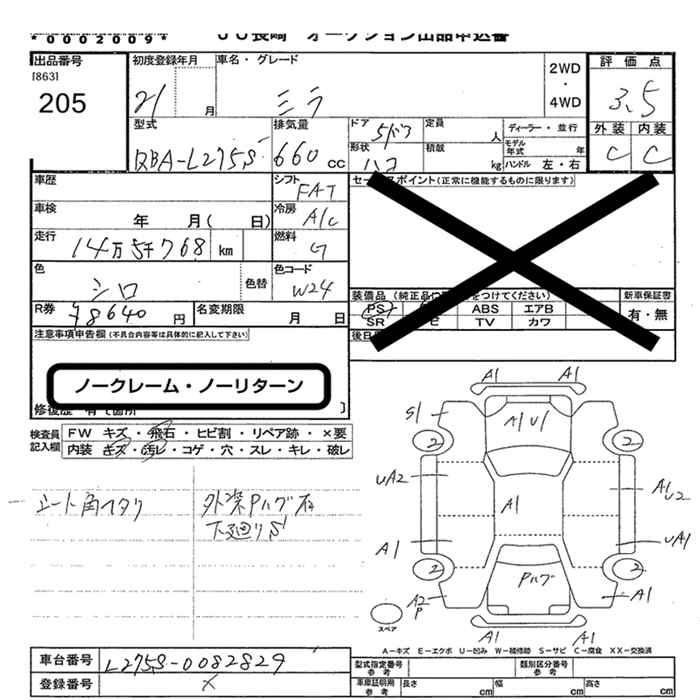 *0002009* JU長崎 オークション出品申込書
出品番号 初度登録年月 車名・グレード 2WD・4WD 評価点
[863]
205 21 月 ミラ 3.5
型式 排気量 ドア 5ドア 定員 人 ディーラー・並行 外装 内装
RBA-L275S 660cc 形状 ハコ 積載 kg モデル年式 年 ハンドル 左・右 C C
車歴 シフト FAT セールスポイント(正常に機能するものに限ります)
車検 年 月( 日) 冷房 A/C
走行 14万5千768 km 燃料 G
色 シロ 色替 色コード W24
装備品(純正品に をつけてください) 新車保証書
R券 ¥8640円 名変期限 月 日 PS ABS エアB 有・無
SR TV カワ
注意事項申告欄(不具合内容等は具体的に記入して下さい) 後日
ノークレーム・ノーリターン
修復歴 有 箇所 ]
検査員記入欄 FW キズ・飛石・ヒビ割・リペア跡・×要
内装 キズ・汚レ・コゲ・穴・スレ・キレ・破レ
外装Pハゲ有
下廻りS
A1 A1
S1 A1U1
2 2
UA2 A1 A1U2
A1 UA1
2 2
A2P Pハゲ A1
スペア A1 A1
A-キズ E-エクボ U-凹み W-補修跡 S-サビ C-腐食 XX-交換済
車台番号 L275S-0082829 型式指定番号 参考 類別区分番号 参考
登録番号 × 車庫証明用 参考 長さ cm 幅 cm 高さ cm